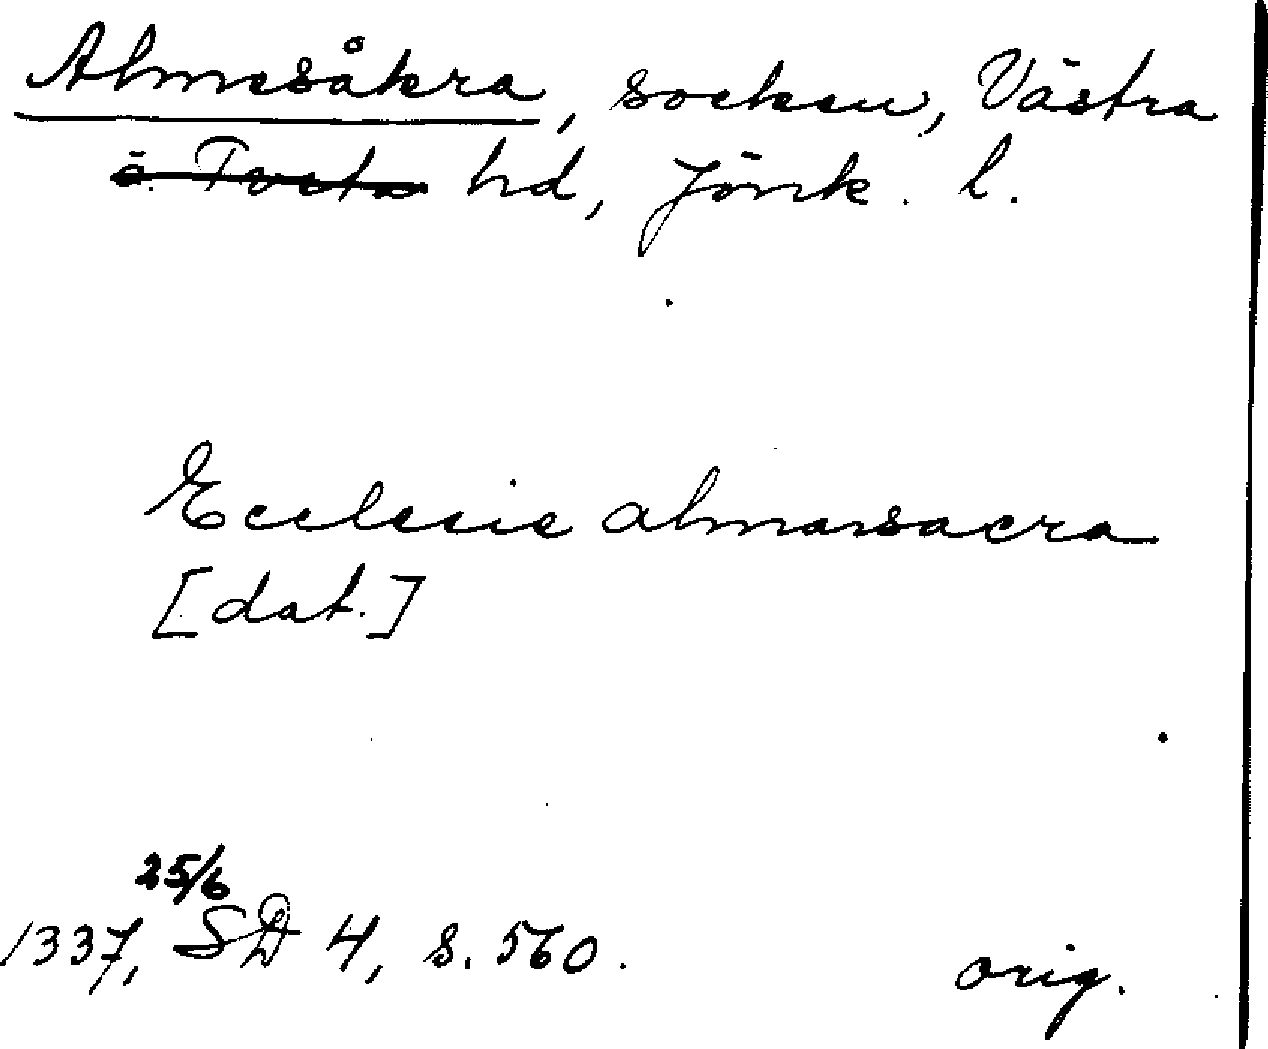 Almesåkra, socken, Västra
ö. Tveta hd, Jönk. l.
Ecclesie almarsacra
[dat.]
25/6
1337, SD 4, s. 560.
orig.